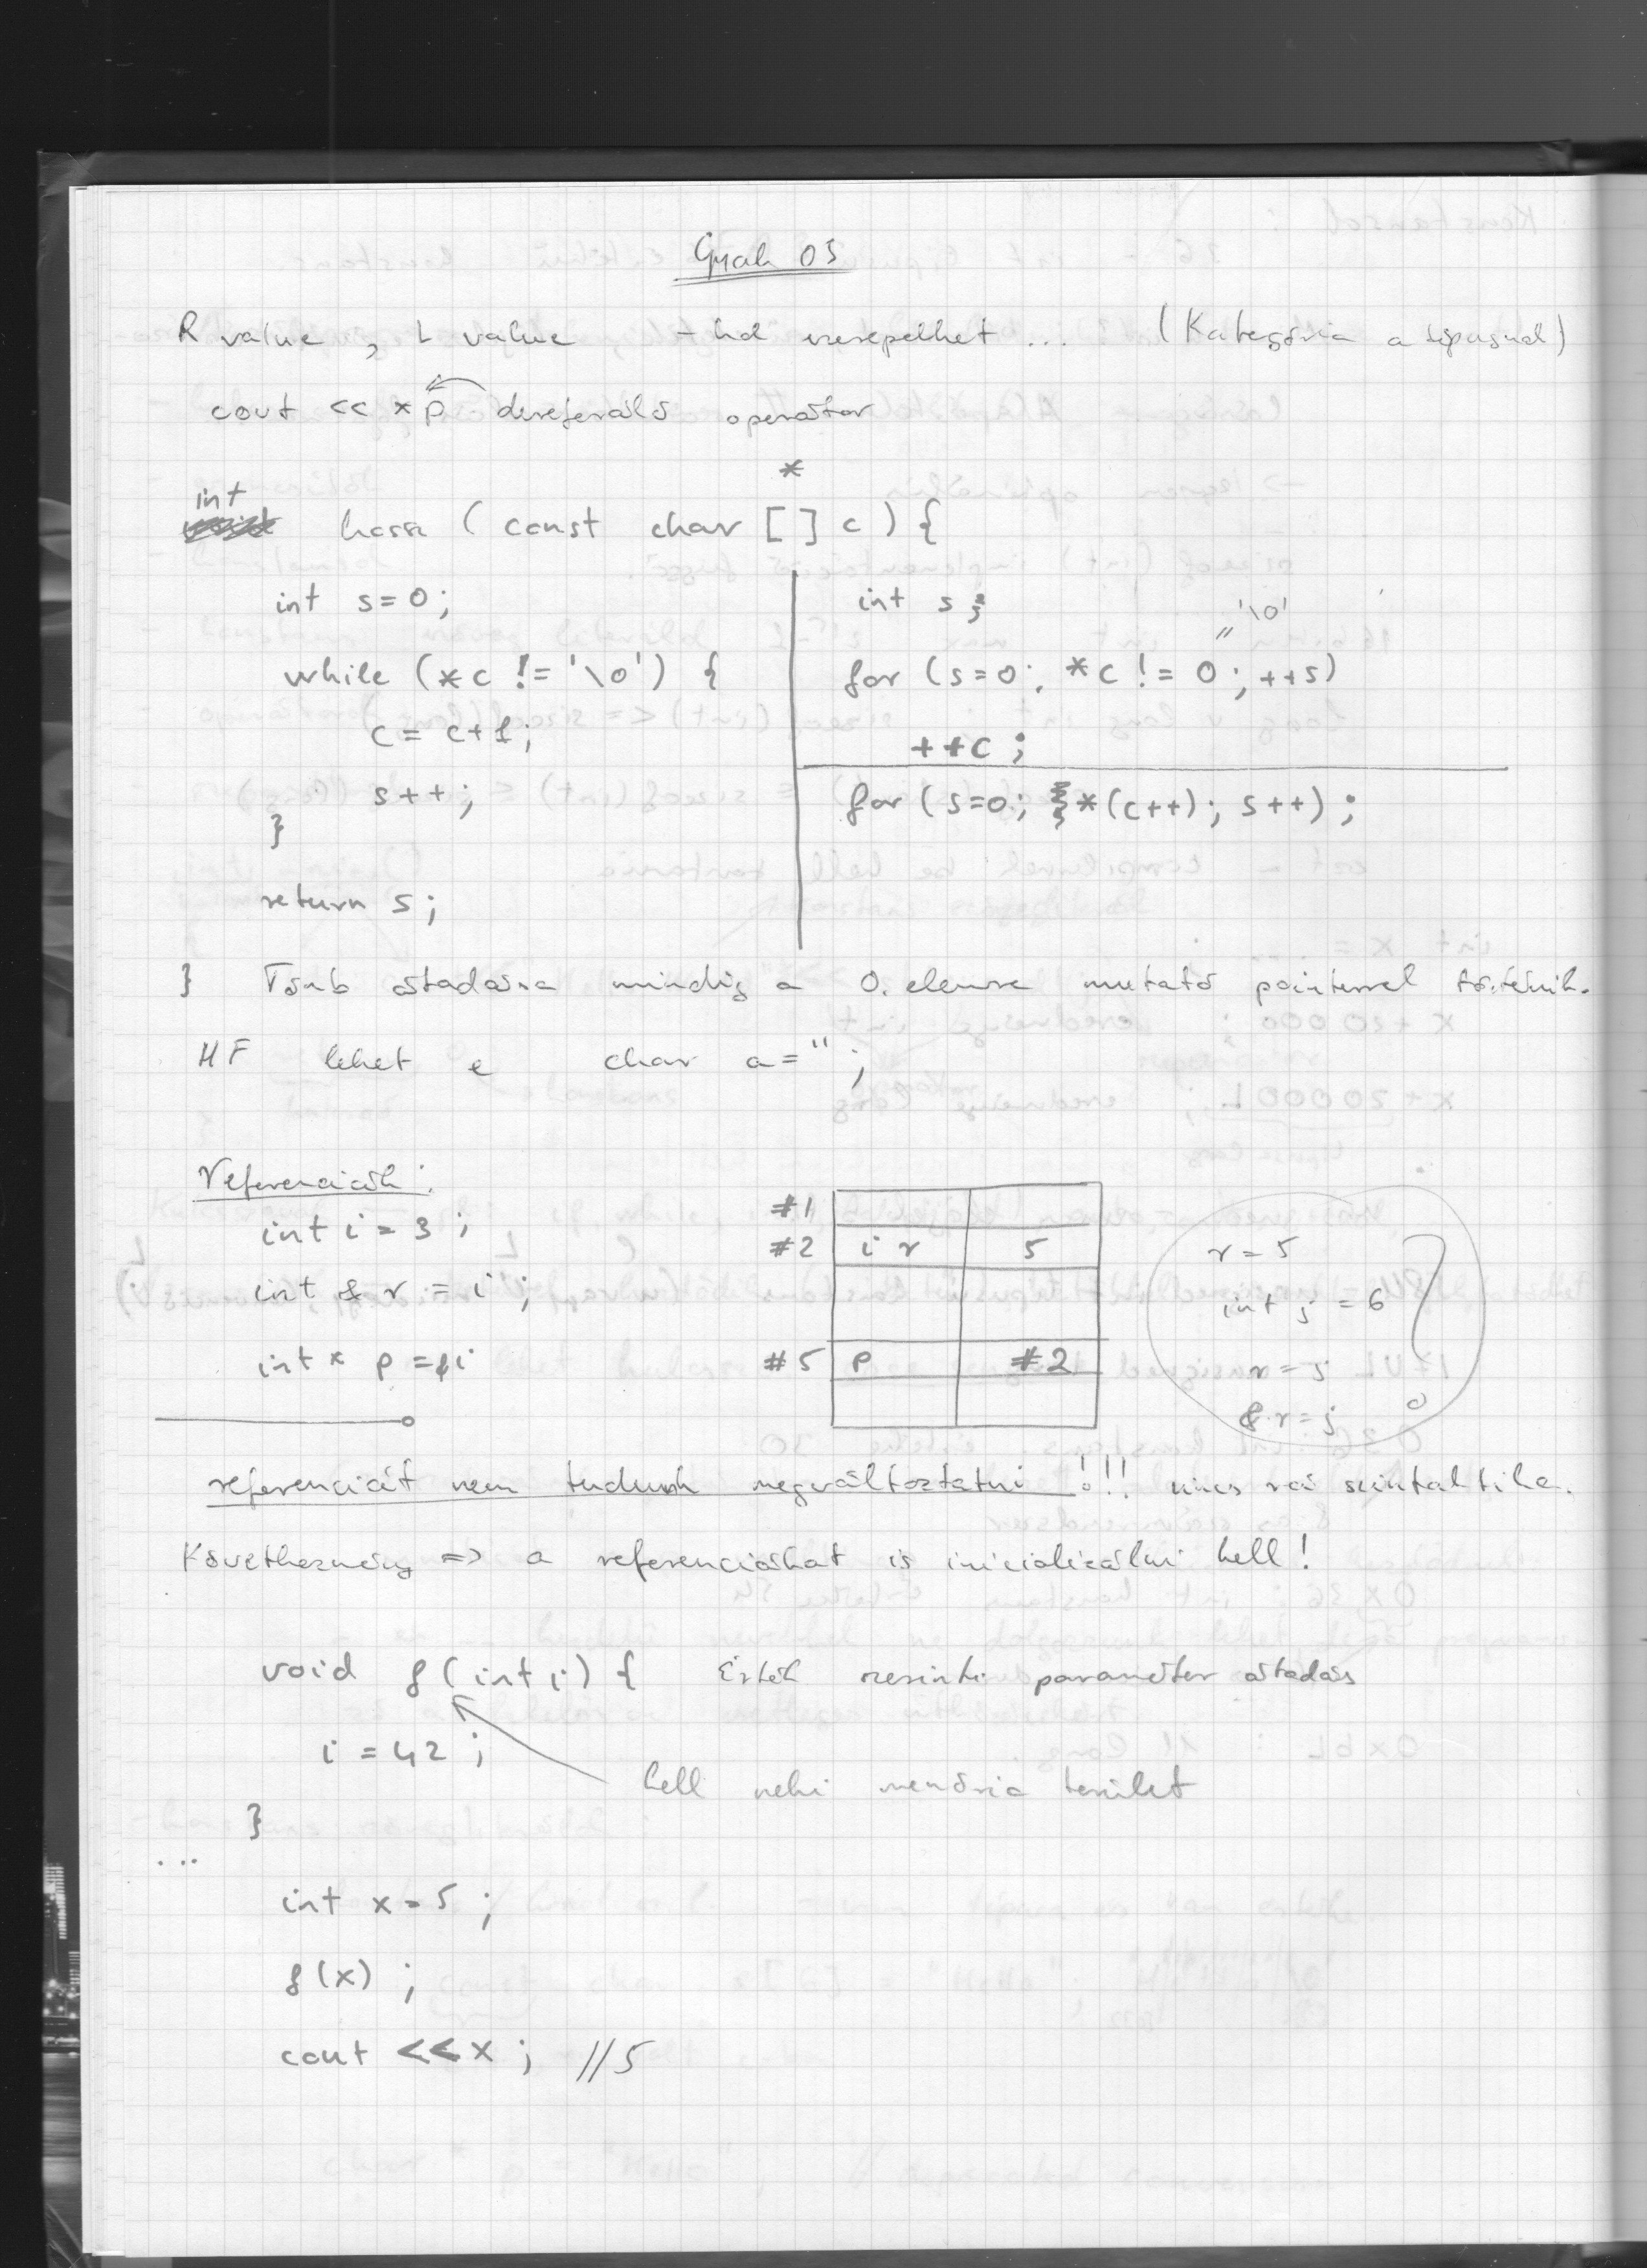 Gyak 05
R value, L value - hol szerepelhet ... (Kategória a típusnál)
cout << *p dereferáló operátor
*
int
hossz (const char [] c) {
int s=0;
while (*c != '\0') {
c = c+1;
s++;
}
return s;
int s;
'\0'
"
for (s=0; *c != 0; ++s)
++c;
for (s=0; *(c++); s++);
} Tömb átadása mindig a 0. elemre mutató pointerrel történik.
HF lehet e char a='';
Referenciák:
int i = 3;
int & r = i;
int * p = &i
#1
#2 i r 5
#5 p #2
r = 5
int j = 6
r = j
& r = j
?
referenciát nem tudunk megváltoztatni !!! nincs rá szintaktika.
Következmény => a referenciákat is inicializálni kell!
void f(int i) { Érték szerinti paraméter átadás
i = 42;
kell neki memória terület
}
...
int x = 5;
f(x);
cout << x; //5